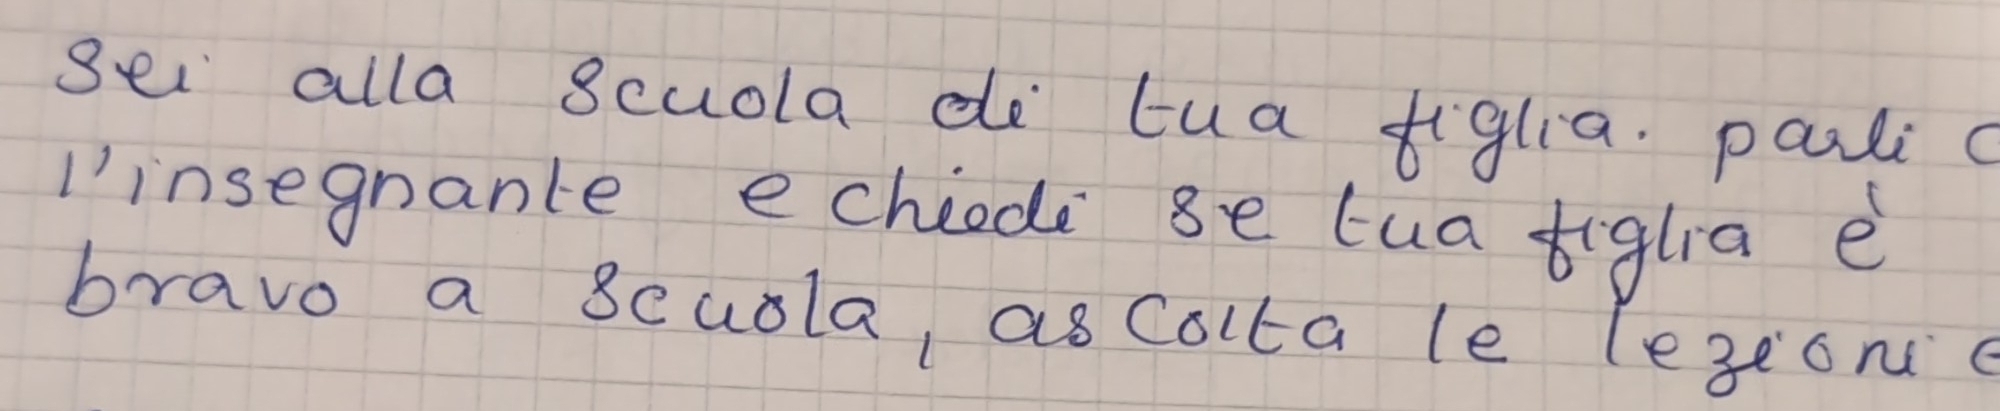 Sei alla scuola di tua figlia. parli
l'insegnante e chiedi se tua figlia è
bravo a scuola, ascolta le lezioni e